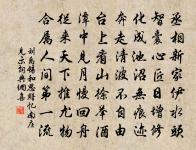 丞相新家伊水頭
智囊心匠日增修
化成池沼無痕迹
奔走清波不自由
台上看山徐舉酒
潭中見月慢回舟
從來天下推尤物
合屬人間第一流
劉禹錫和思黯憶南庄
見示